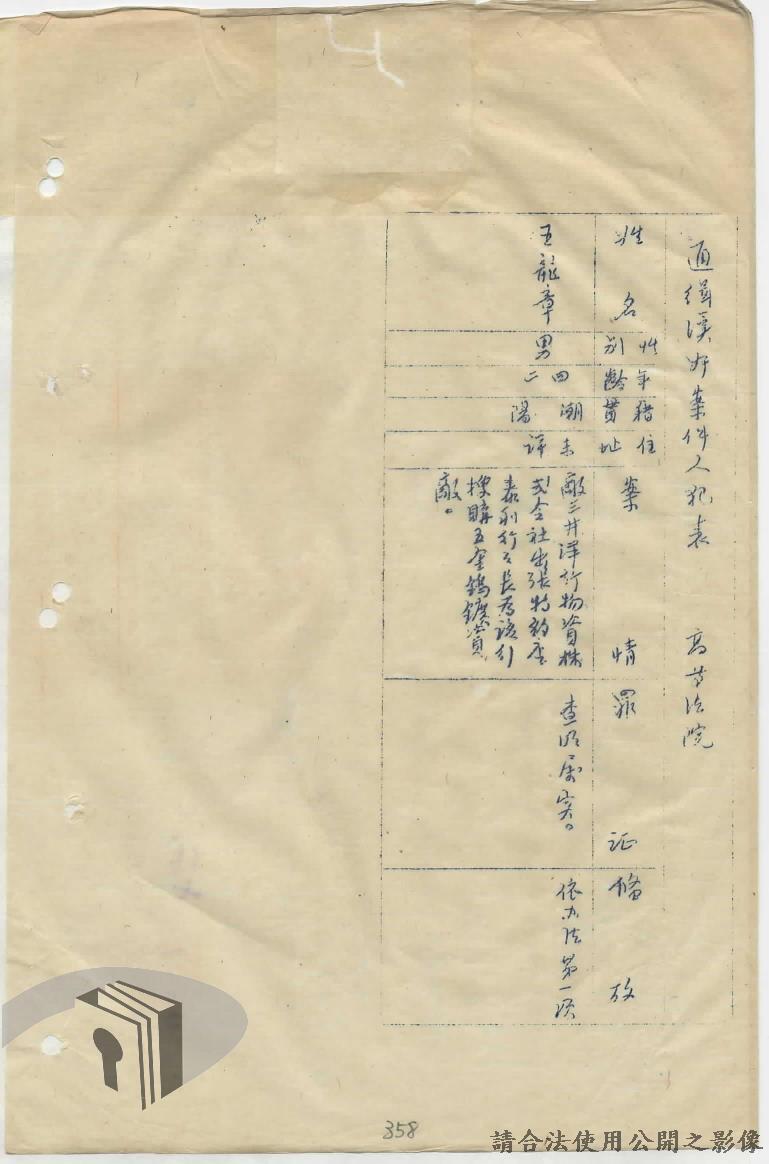 通緝漢奸案件人犯表　高等法院
姓名
性別
年齡
籍貫
住址
案情
罪証
備攷
王龍章
男
四二
潮陽
未詳
敵三井洋行物資株
式会社出張特約店
泰利行行長為該行
搜購五金鎢鑛資
敵。
查明屬实。
依办法第一項
358
請合法使用公開之影像